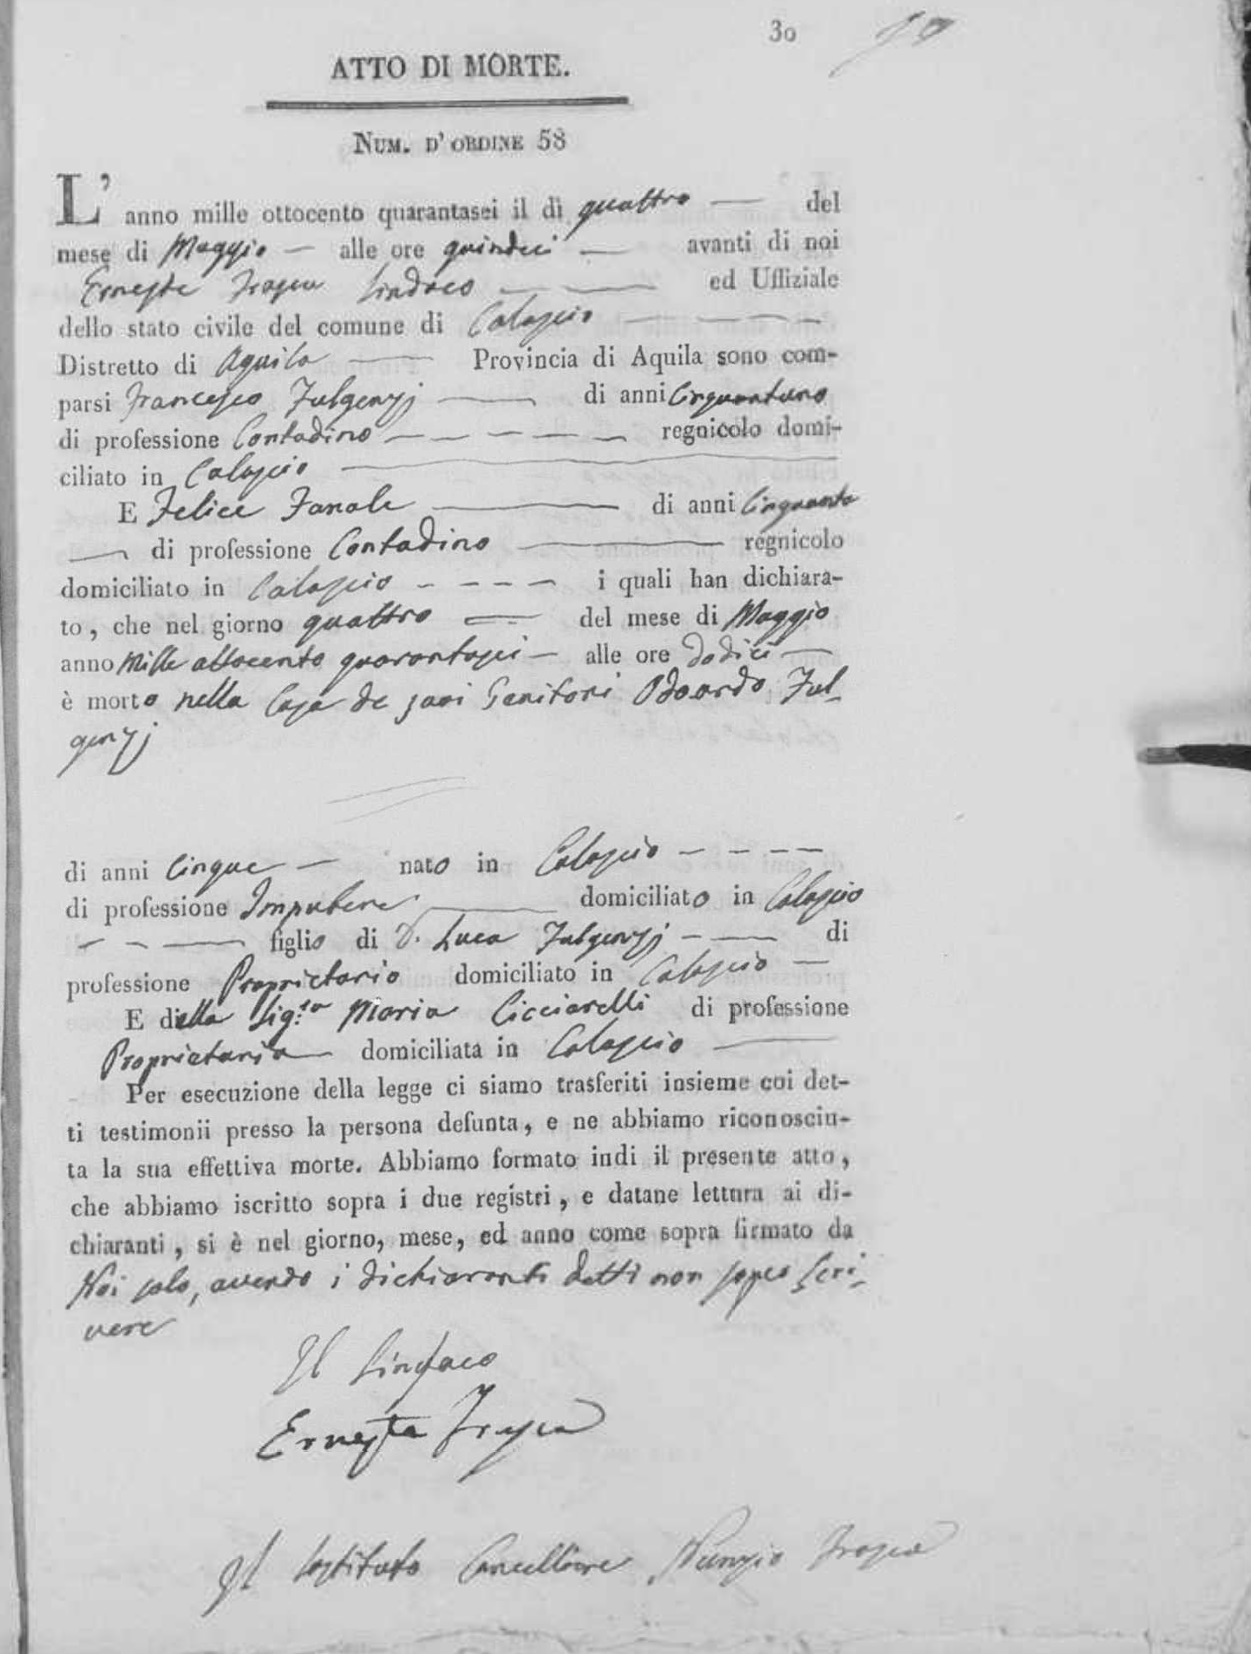 30
ATTO DI MORTE.
NUM. D' ORDINE 58
L' anno mille ottocento quarantasei il dì quattro del
mese di Maggio alle ore quindeci avanti di noi
Erneste Frasca Sindaco ed Uffiziale
dello stato civile del comune di Calascio
Distretto di Aquila Provincia di Aquila sono com-
parsi Francesco Fulgenzj di anni Cinquantuno
di professione Contadino regnicolo domi-
ciliato in Calascio
E Felice Fanale di anni Cinquanta
di professione Contadino regnicolo
domiciliato in Calascio i quali han dichiara-
to, che nel giorno quattro del mese di Maggio
anno Mille ottocento quarantasei alle ore dodici
è morto nella Casa de suoi Genitori Odoardo Ful-
genzj
di anni Cinque nato in Calascio
di professione Impubere domiciliato in Calascio
figlio di D. Luca Fulgenzj di
professione Proprietario domiciliato in Calascio
E della Sig.ra Maria Cicciarelli di professione
Proprietaria domiciliata in Calascio
Per esecuzione della legge ci siamo trasferiti insieme coi det-
ti testimonii presso la persona defunta, e ne abbiamo riconosciu-
ta la sua effettiva morte. Abbiamo formato indi il presente atto,
che abbiamo iscritto sopra i due registri, e datane lettura ai di-
chiaranti, si è nel giorno, mese, ed anno come sopra firmato da
Noi solo, avendo i dichiaranti detti non sapes scri-
vere
Il Sindaco
Erneste Frasca
Il Sostituto Cancelliere Nunzio Frasca